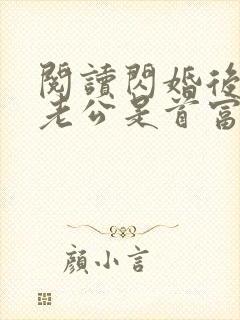 閱讀閃婚後
老公是首富
顏小言